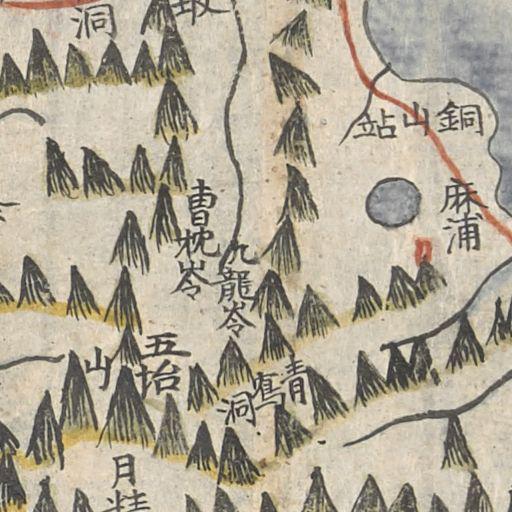 洞
銅山站
麻浦
曹枕岺
九龍岺
五抬山
青鶴洞
月精